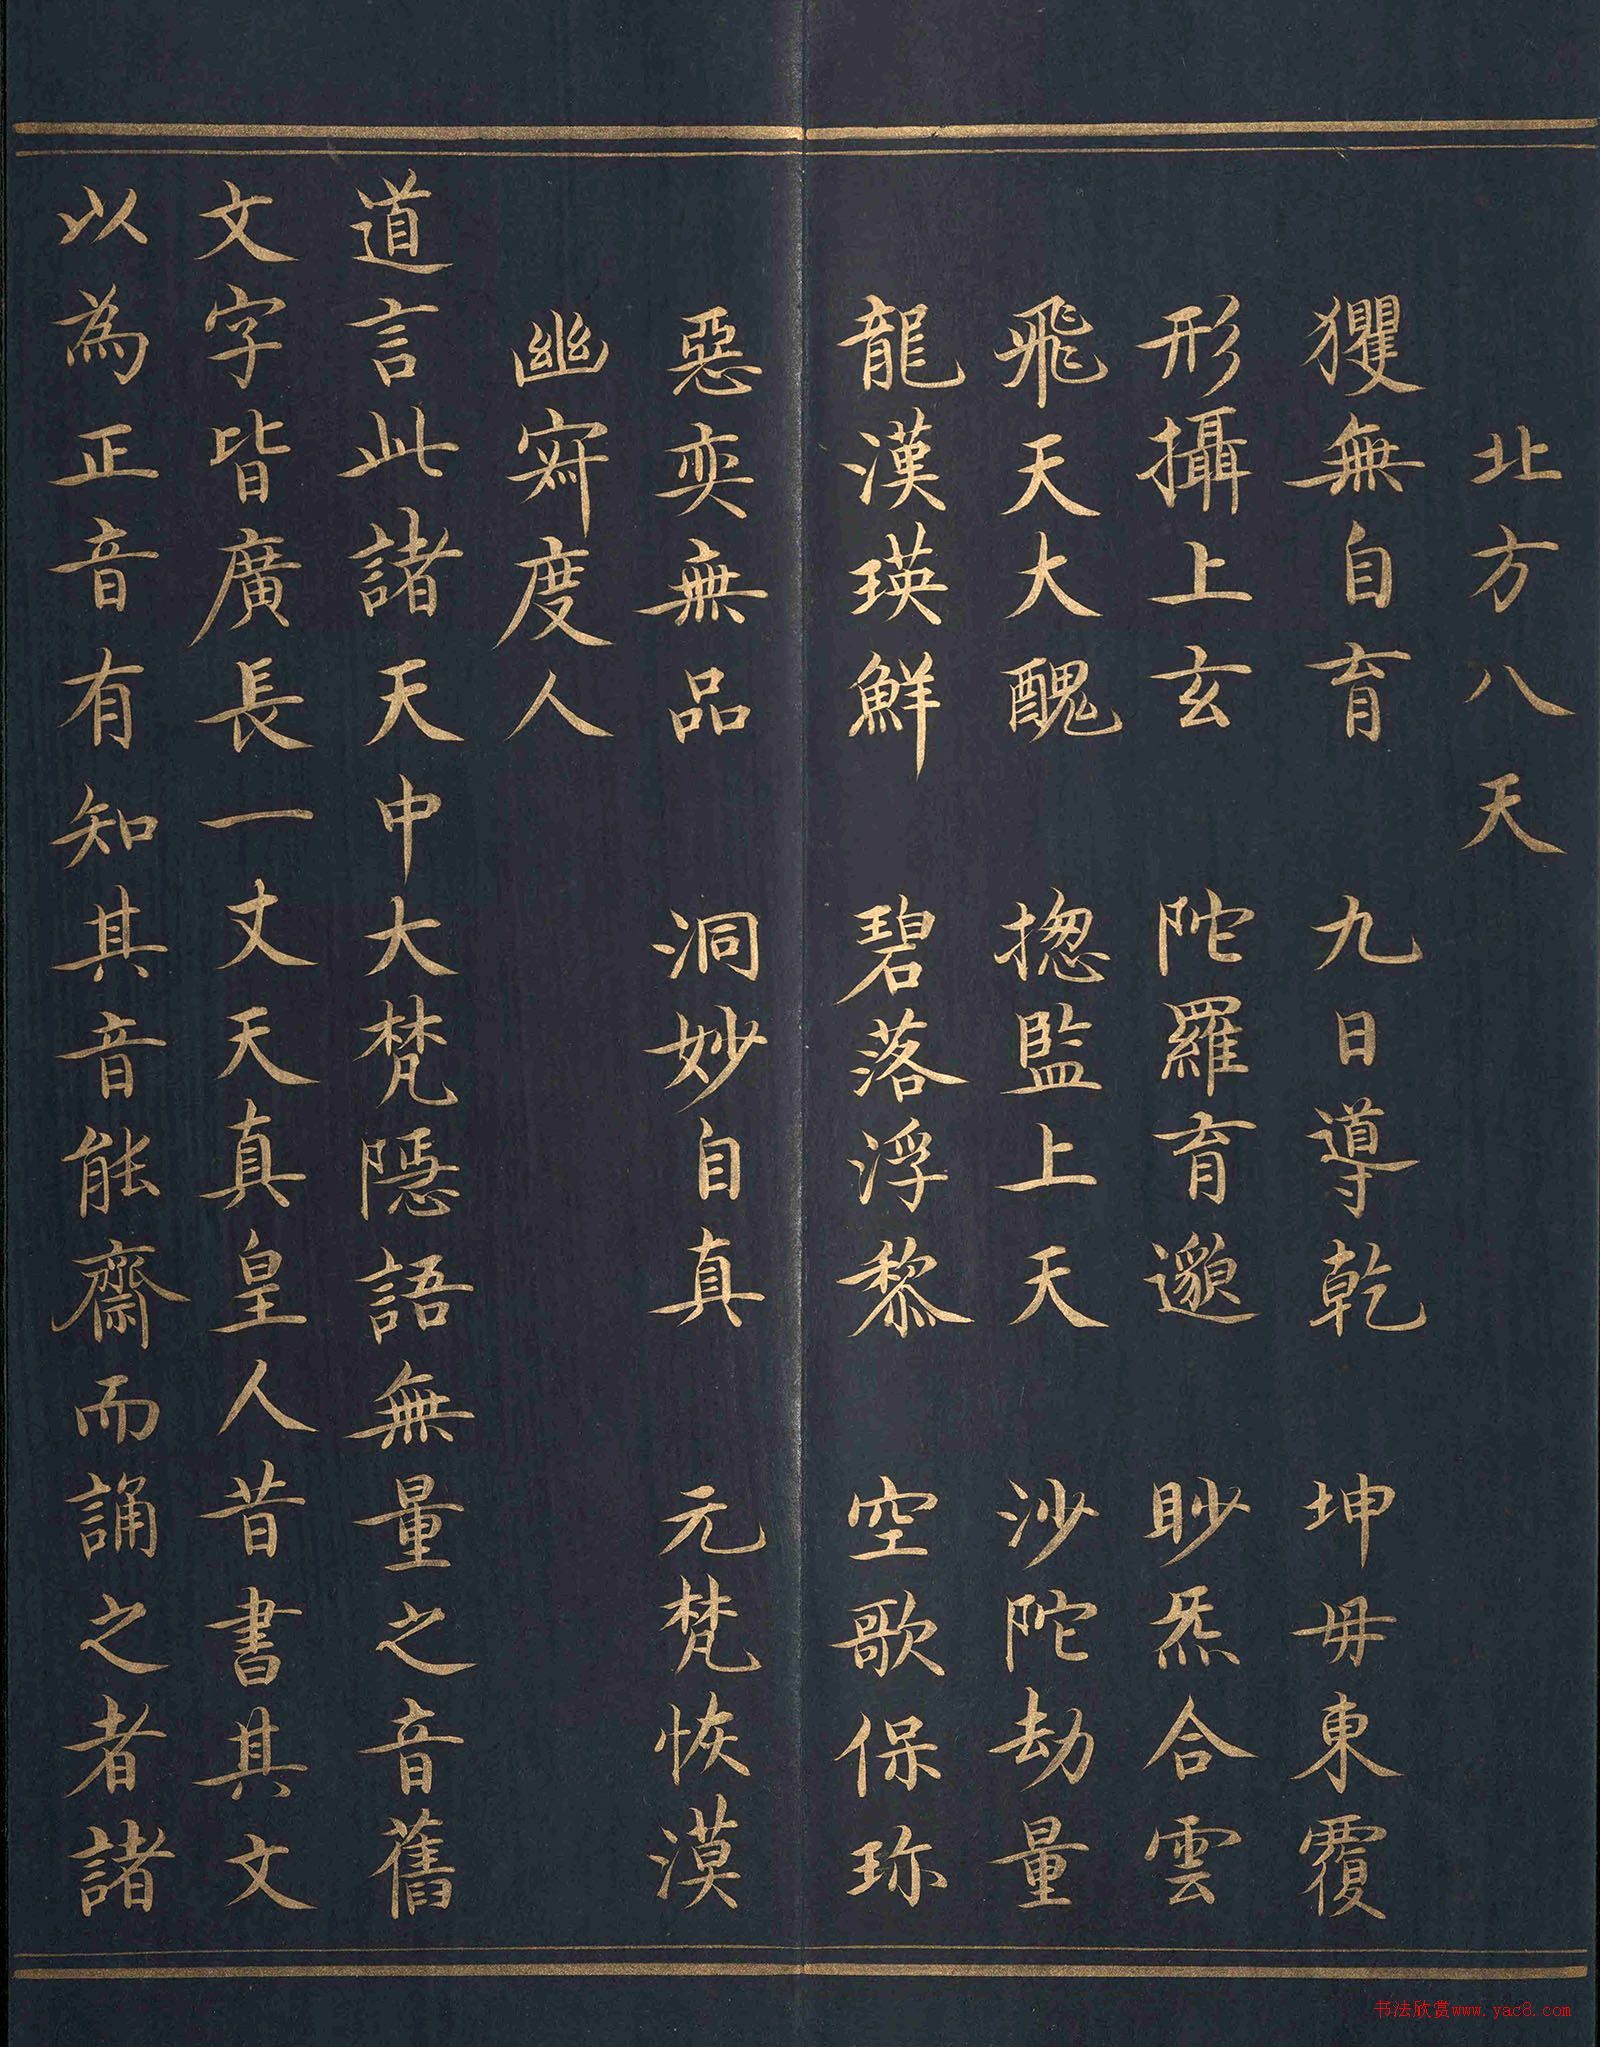 北方八天
玃無自育 九日導乾 坤母東覆
形攝上玄 陀羅育邈 眇炁合雲
飛天大醜 揔監上天 沙陀劫量
龍漢瑛鮮 碧落浮黎 空歌保珎
惡奕無品 洞妙自真 元梵恢漠
幽寂度人
道言此諸天中大梵隱語無量之音舊
文字皆廣長一丈天真皇人昔書其文
以為正音有知其音能齋而誦之者諸
书法欣赏www.yac8.com